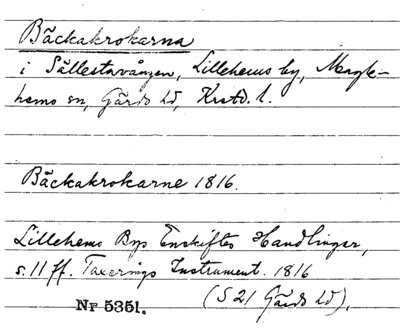 Bäckakrokarna
i Sällestavången, Lillehems by, Magle-
hems sn, Gärds hd, Krstd. l.
Bäckakrokarne 1816.
Lillehems Bys Enskiftes Handlingar,
s. 11 ff. Taxerings Instrument. 1816
(S 21 Gärds hd),
Nr 5351.